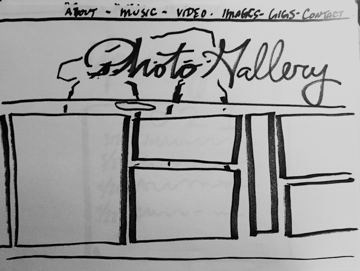 ABOUT - MUSIC - VIDEO - IMAGES - GIGS - CONTACT
Photo Gallery